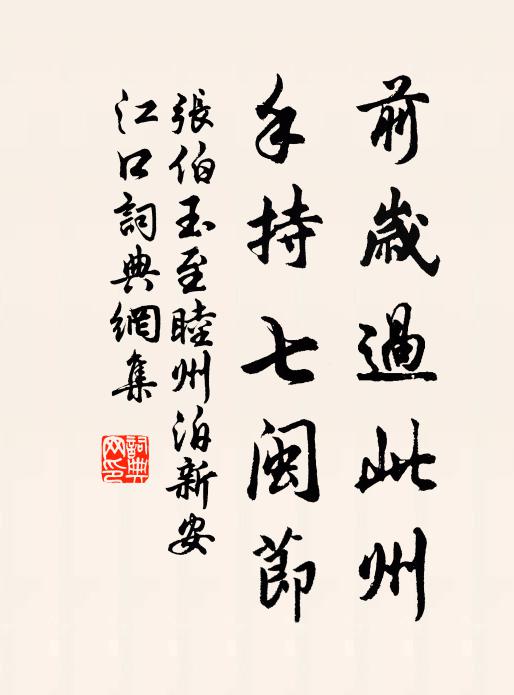 前歲過此州
手持七閩節
張伯玉至睦州泊新安
江口詞典網集
詞典網印